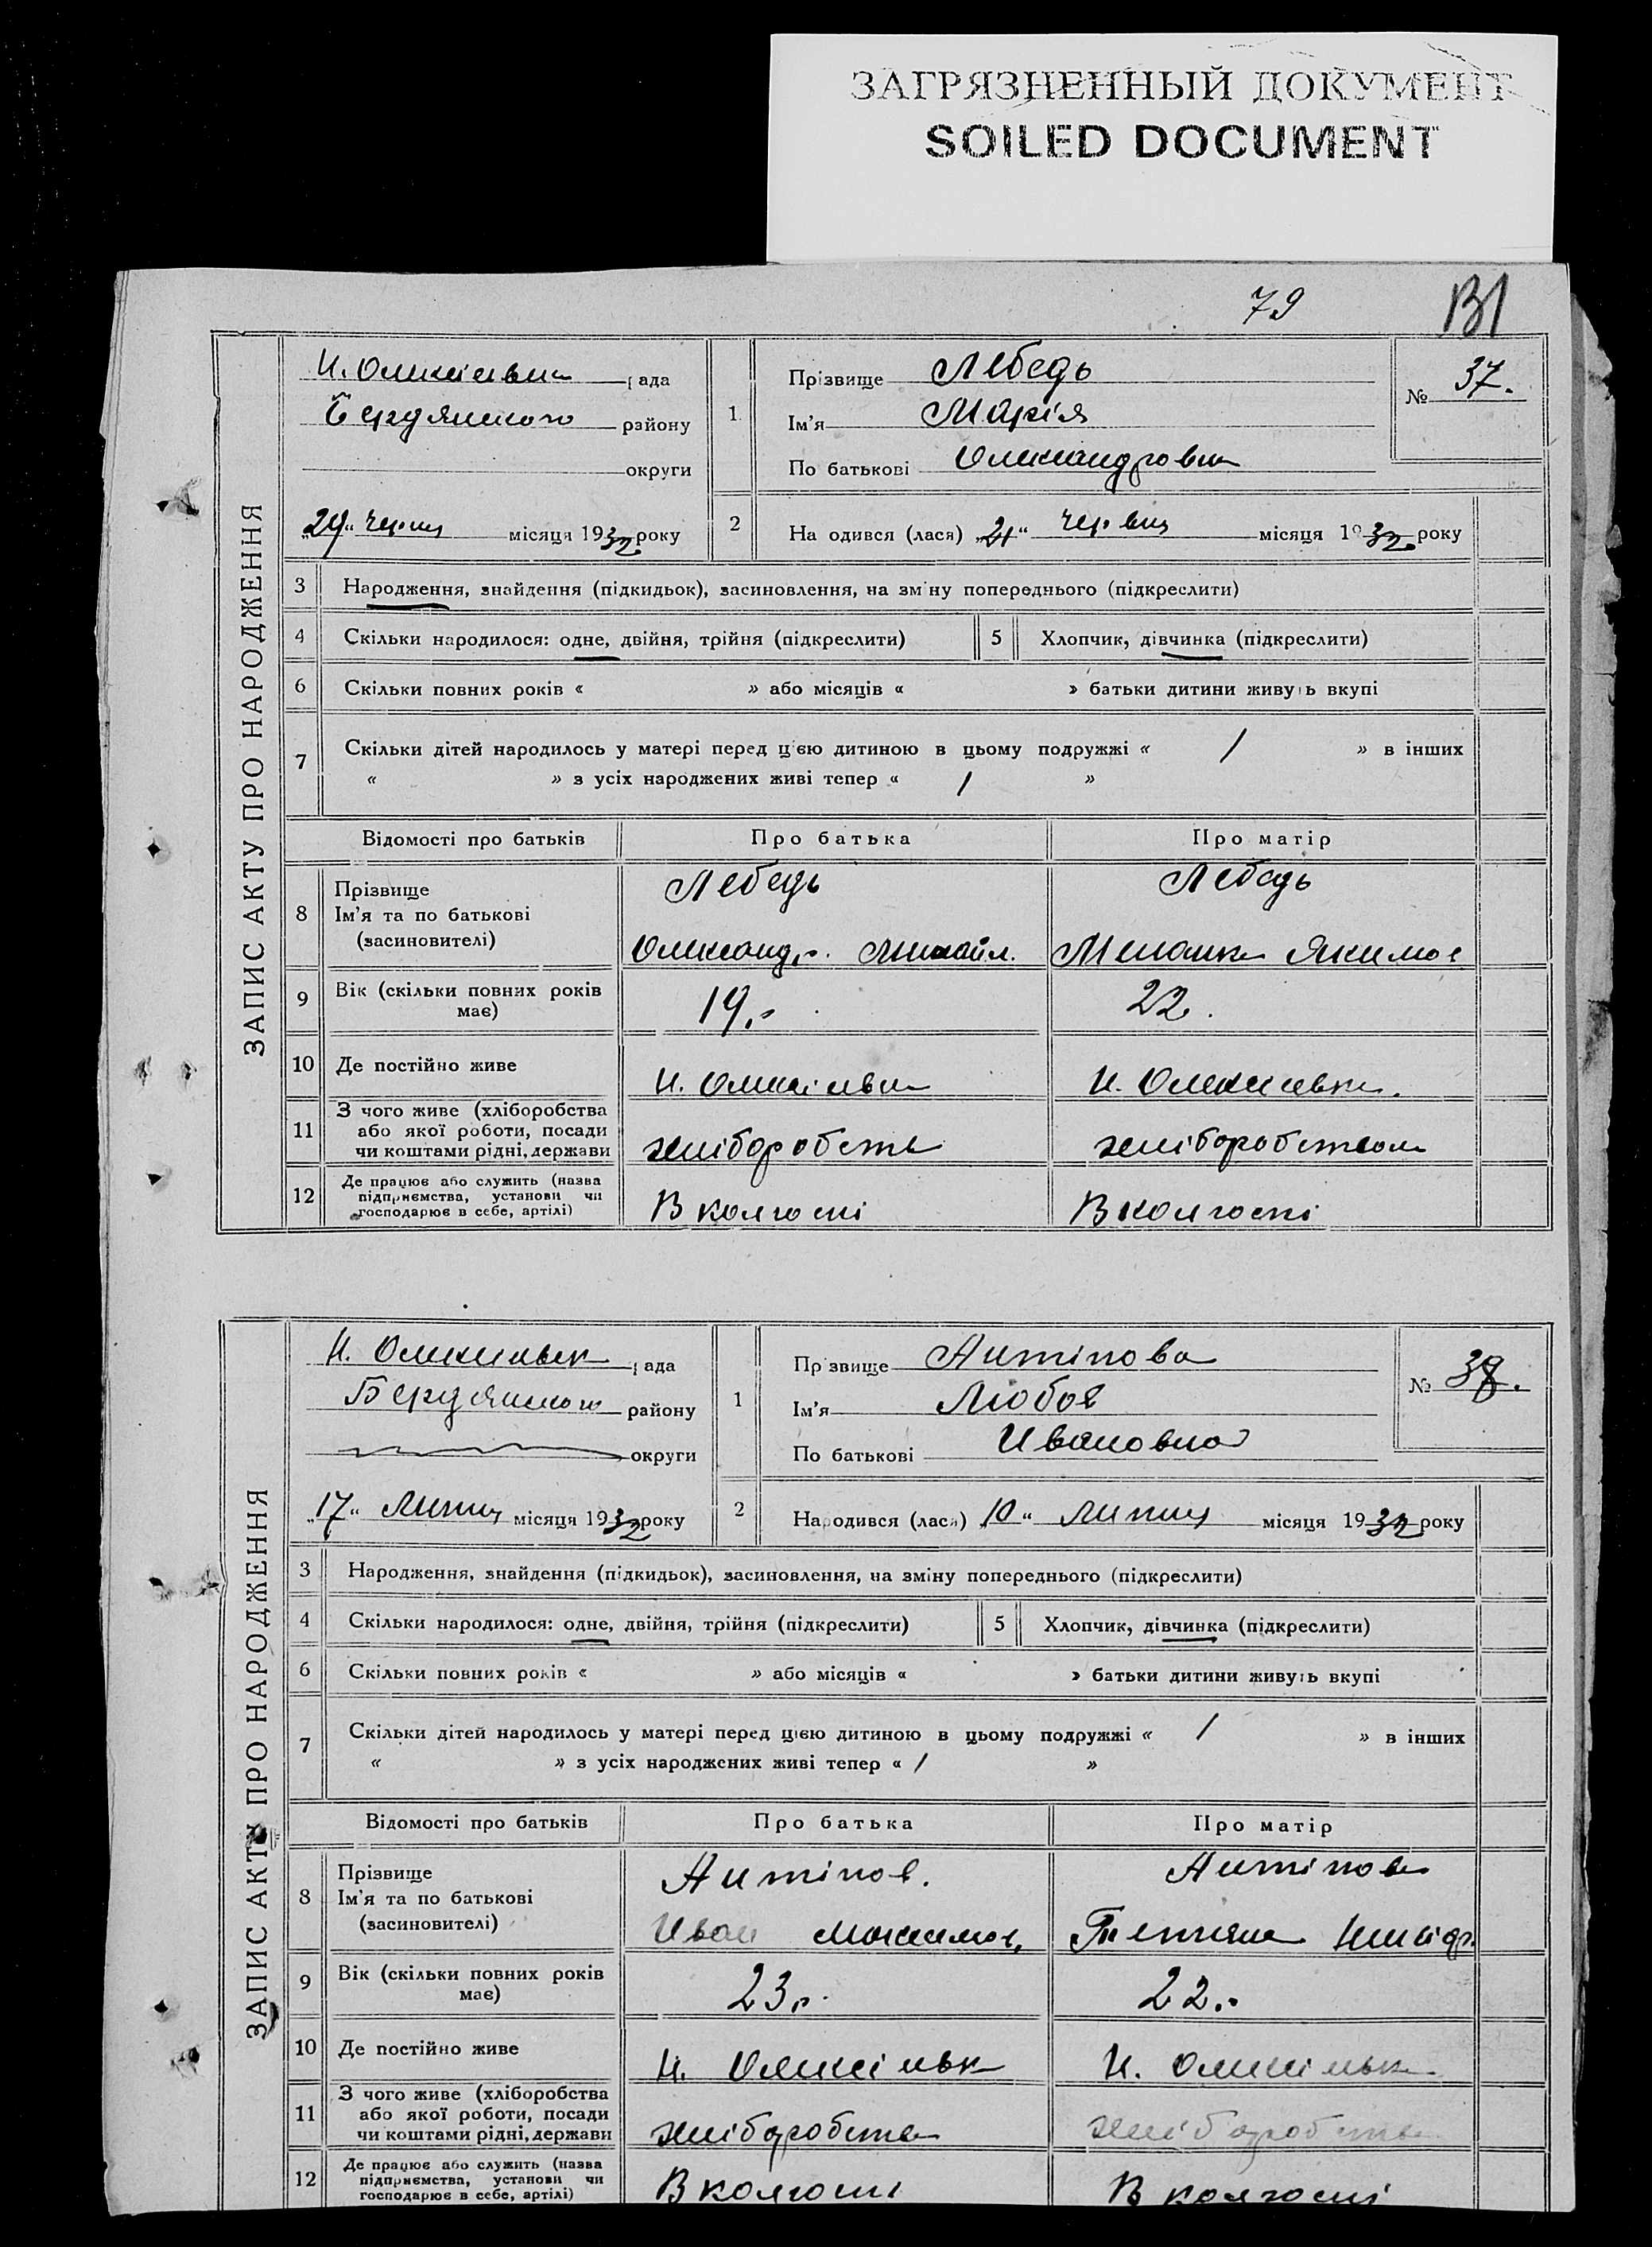 ЗАГРЯЗНЕННЫЙ ДОКУМЕНТ
SOILED DOCUMENT
79
131
ЗАПИС АКТУ ПРО НАРОДЖЕННЯ
Н. Олексіївка рада
Бердянського району
округи
1
Прізвище Лебедь
Ім'я Марія
По батькові Олександровна
№ 37.
червня місяця 1932 року
2
На одився (лася) „21“ червня місяця 1932 року
3 Народження, знайдення (підкидьок), засиновлення, на зміну попереднього (підкреслити)
4 Скільки народилося: одне, двійня, трійня (підкреслити)
5 Хлопчик, дівчинка (підкреслити)
6 Скільки повних років « » або місяців « » батьки дитини живуть вкупі
7 Скільки дітей народилось у матері перед цією дитиною в цьому подружжі « / » в інших
« » з усіх народжених живі тепер « / »
Відомості про батьків Про батька Про матір
8 Прізвище
Ім'я та по батькові
(засиновителі)
Лебедь
Олександр. Михайл.
Лебедь
Меланка Якимов
9 Вік (скільки повних років
має)
19.
22.
10 Де постійно живе Н. Олексіївка Н. Олексіївка.
11 З чого живе (хліборобства
або якої роботи, посади
чи коштами рідні, держави
хліборобств
хліборобством
12 Де працює або служить (назва
підприємства, установи чи
господарює в себе, артілі)
В колгоспі
В колгоспі
ЗАПИС АКТУ ПРО НАРОДЖЕННЯ
Н. Олексіївк рада
Бердянського району
округи
1
Прізвище Антіпова
Ім'я Любов
По батькові Ивановна
№ 38.
„17“ Липня місяця 1932 року
2
Народився (лася) 10“ Липня місяця 1932 року
3 Народження, знайдення (підкидьок), засиновлення, на зміну попереднього (підкреслити)
4 Скільки народилося: одне, двійня, трійня (підкреслити)
5 Хлопчик, дівчинка (підкреслити)
6 Скільки повних років « » або місяців « » батьки дитини живуть вкупі
7 Скільки дітей народилось у матері перед цією дитиною в цьому подружжі « / » в інших
« » з усіх народжених живі тепер « / »
Відомості про батьків Про батька Про матір
8 Прізвище
Ім'я та по батькові
(засиновителі)
Антіпов.
Иван Максимов.
Антіпова
Тетяна
9 Вік (скільки повних років
має)
23.
22.
10 Де постійно живе Н. Олексіївк Н. Олексіївк
11 З чого живе (хліборобства
або якої роботи, посади
чи коштами рідні, держави
хліборобств
хліборобств
12 Де працює або служить (назва
підприємства, установи чи
господарює в себе, артілі)
В колгоспі
В колгоспі